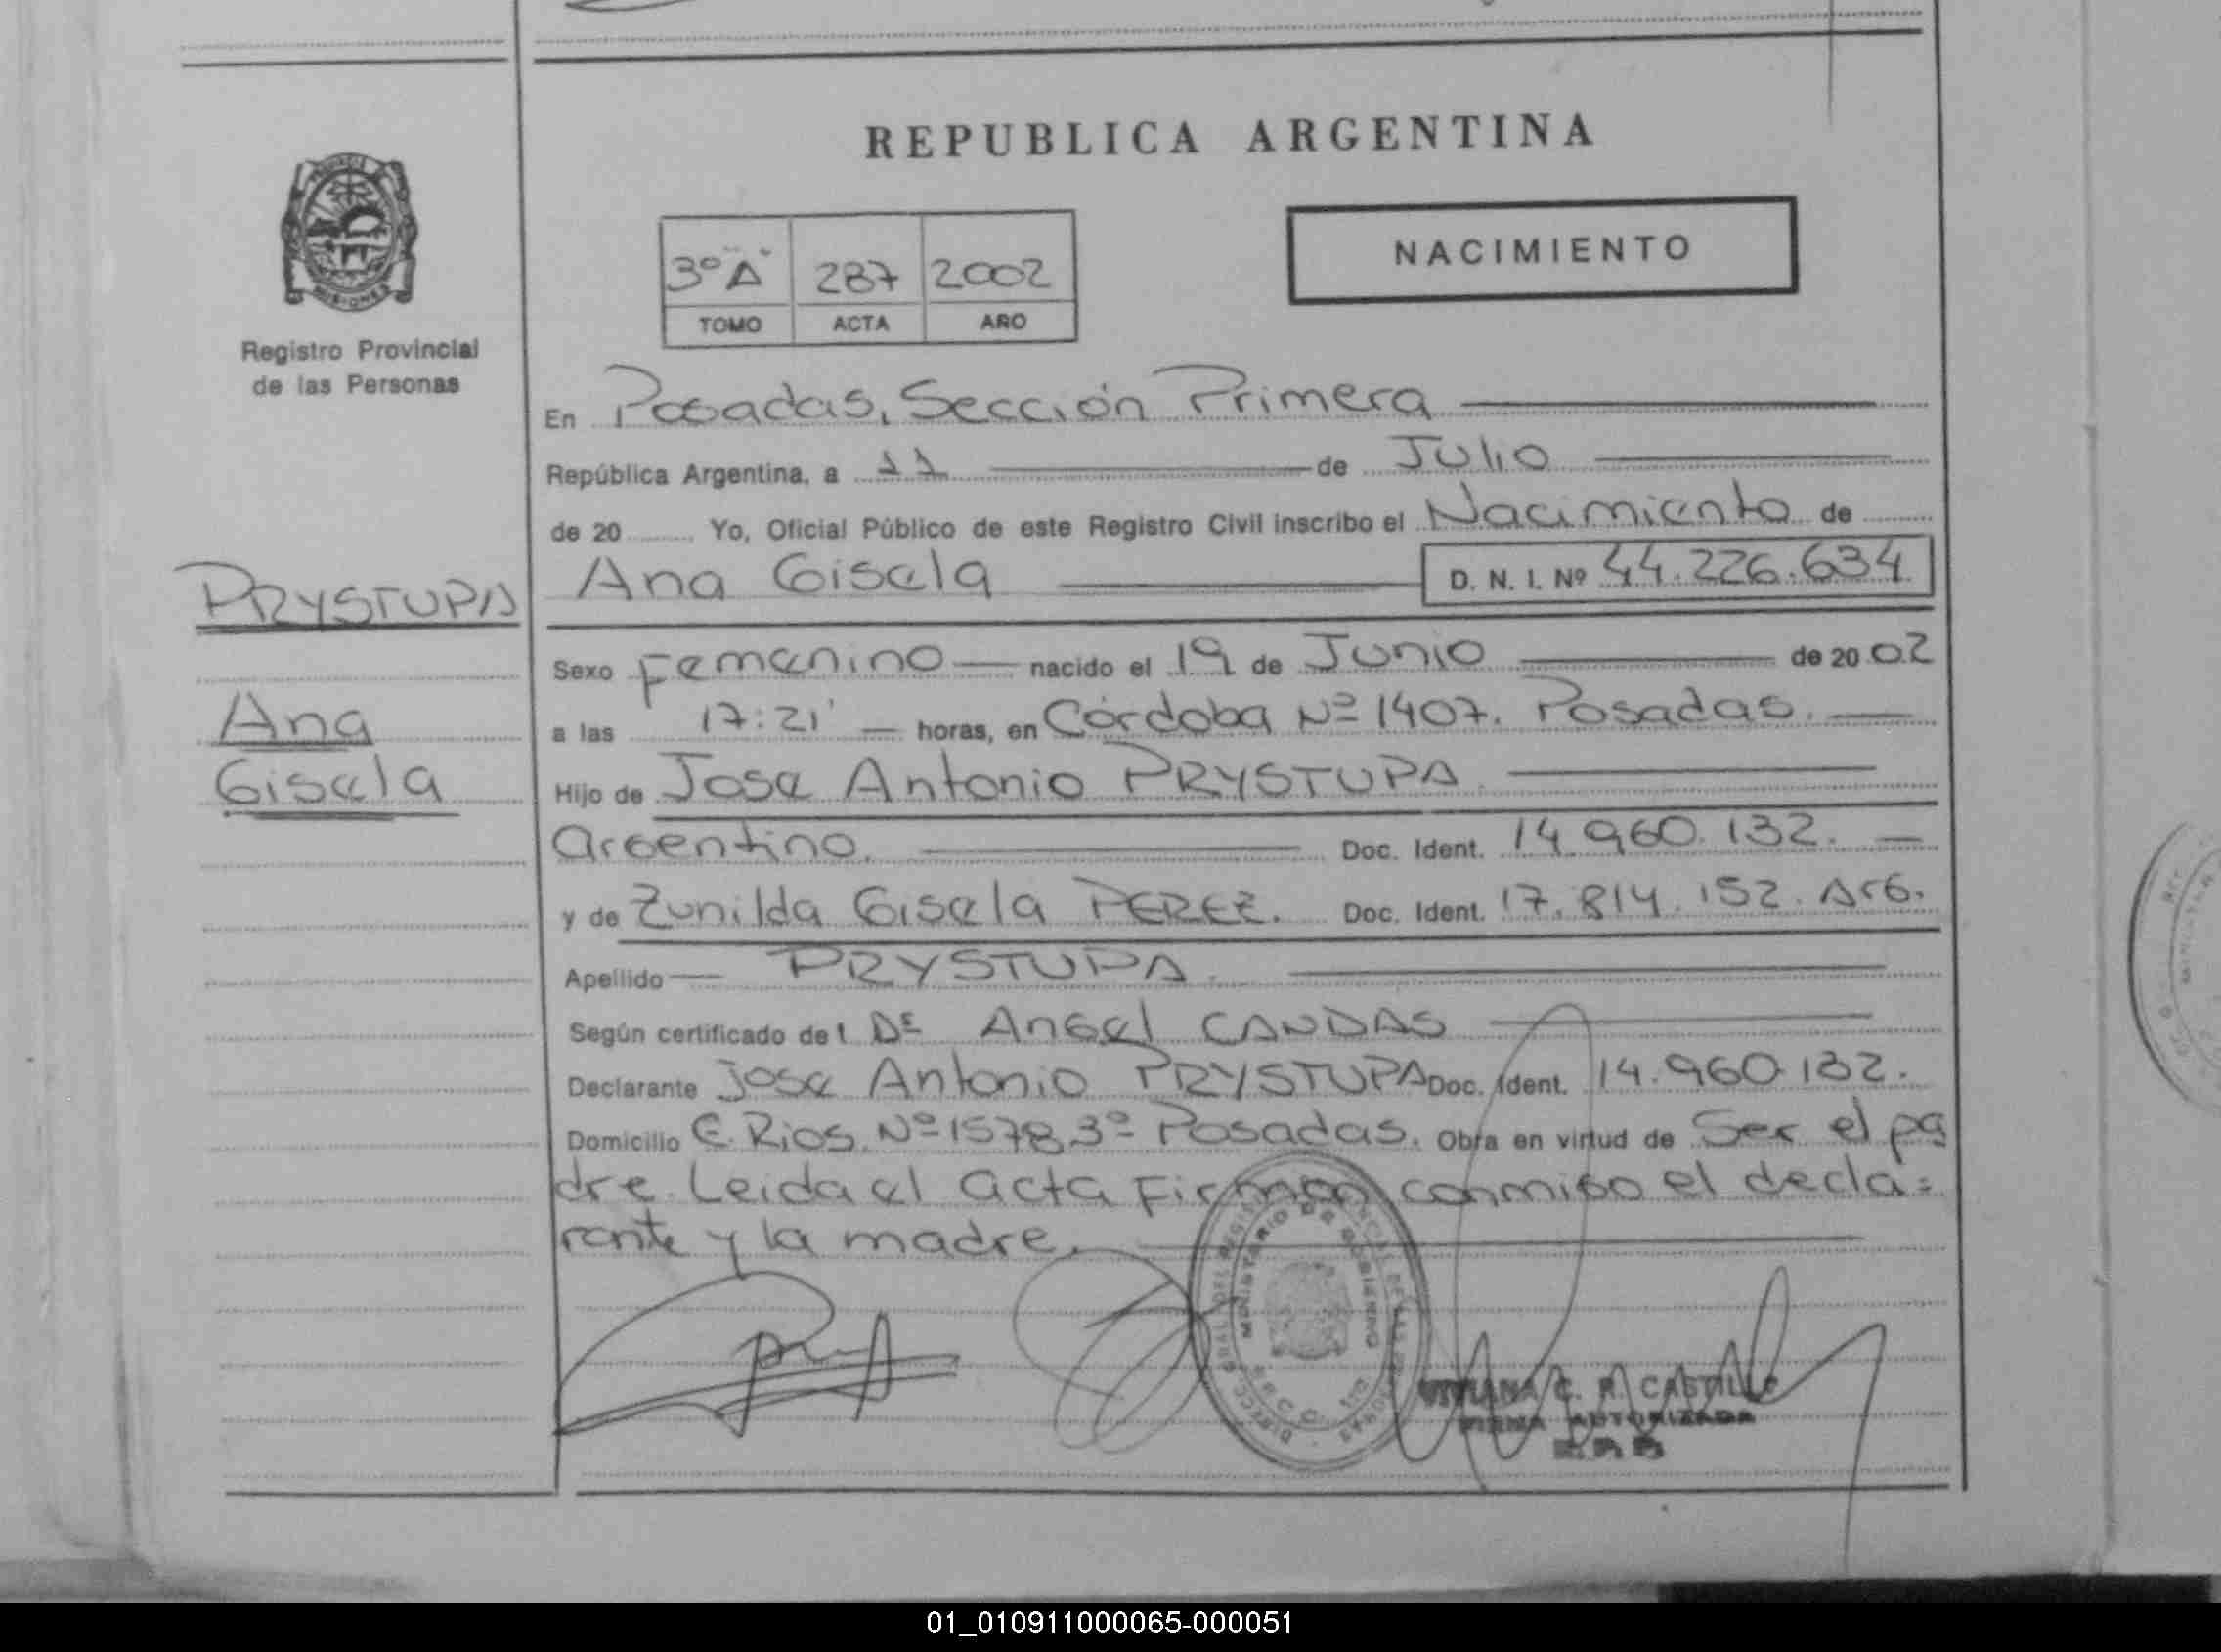 REPUBLICA ARGENTINA
NACIMIENTO
3º "A" 287 2002
TOMO ACTA AÑO
Registro Provincial
de las Personas
En Posadas, Sección Primera
República Argentina, a 11 de Julio
de 20 Yo, Oficial Público de este Registro Civil inscribo el Nacimiento de
Ana Gisela D. N. I. Nº 44.226.634
PRYSTUPA
Ana
Gisela
Sexo Femenino nacido el 19 de Junio de 20 02
a las 17:21' horas, en Córdoba Nº 1407. Posadas.
Hijo de Jose Antonio PRYSTUPA.
argentino. Doc. Ident. 14.960.132.
y de Zunilda Gisela PEREZ. Doc. Ident. 17.814.152. Arg.
Apellido PRYSTUPA.
Según certificado del Dr Angel CANDAS
Declarante Jose Antonio PRYSTUPA Doc. Ident. 14.960.132.
Domicilio E. Rios. Nº 1578 3º Posadas. Obra en virtud de Ser el pa
dre. Leida el acta Firman conmigo el decla=
rante y la madre.
MINISTERIO DE GOBIERNO
VIVIANA C. R. CASTILLO
FIRMA AUTORIZADA
01_010911000065-000051